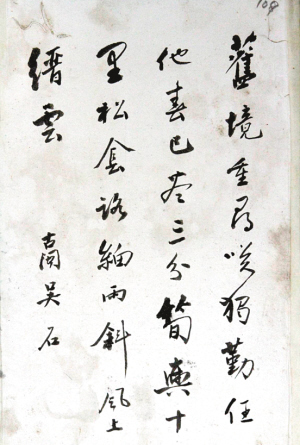 舊境重尋笑獨勤任
他春已三分筍輿十
里松侌路細雨斜風上
縉雲 古閩吳石